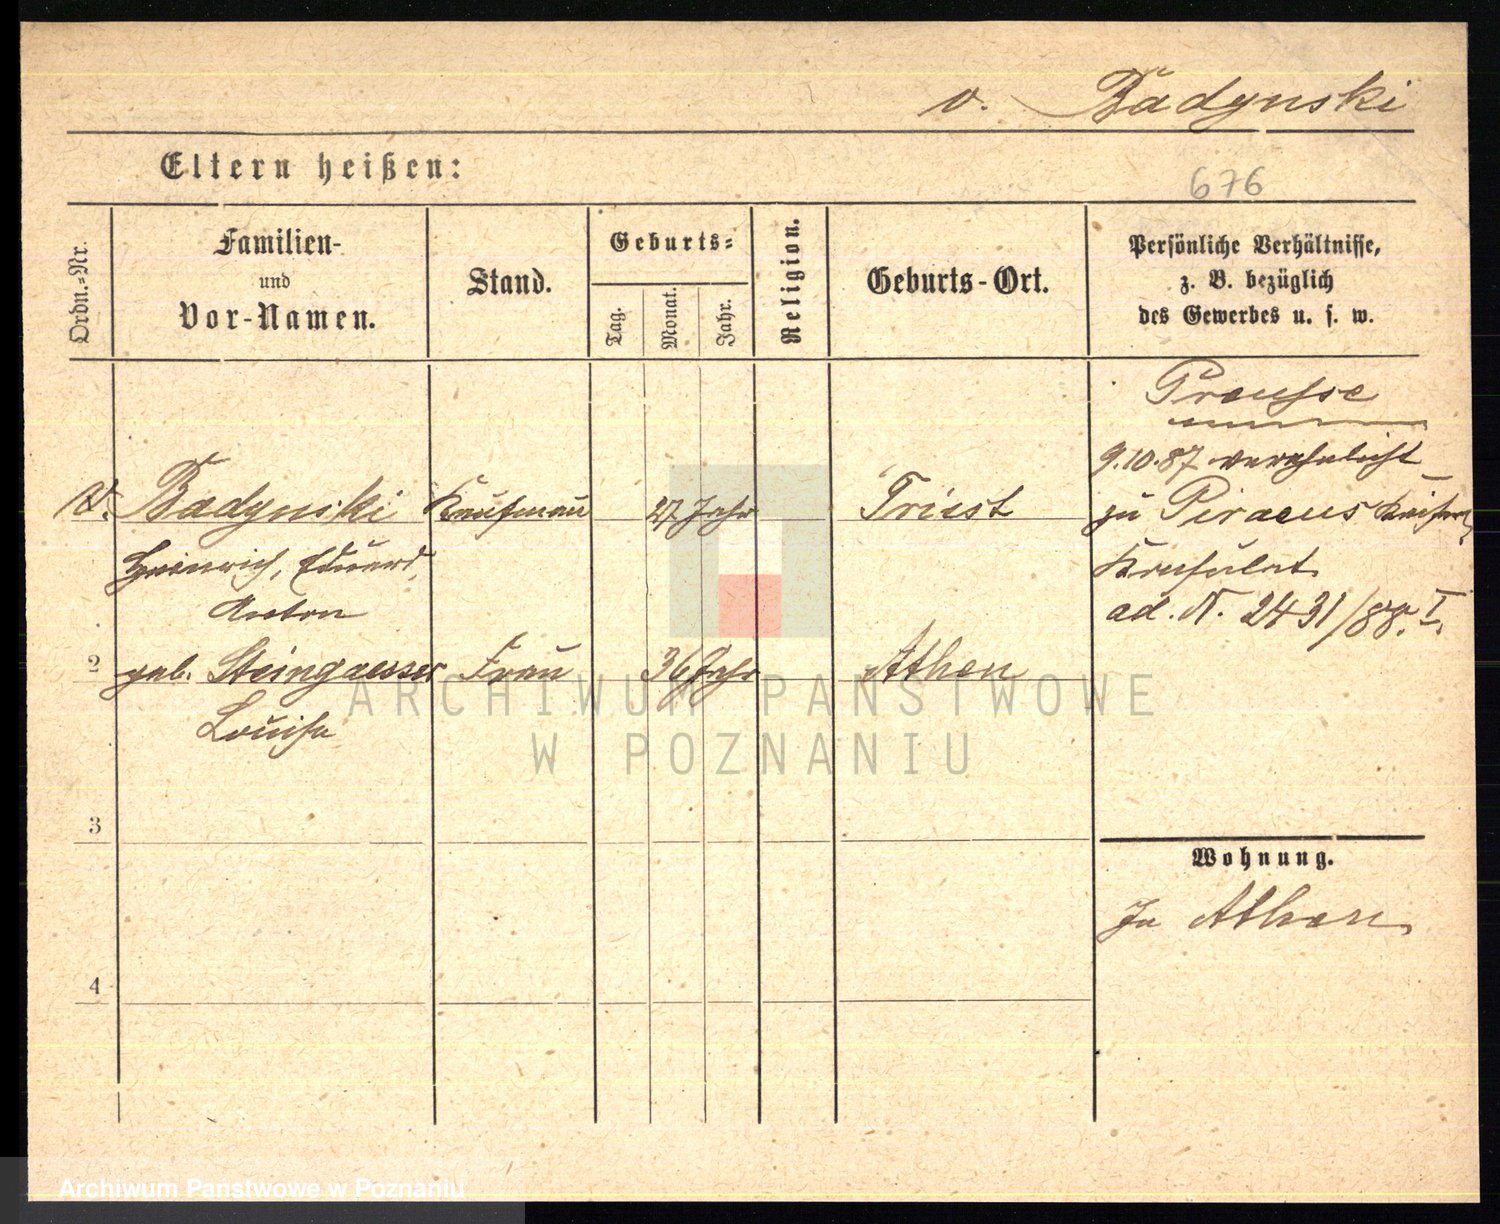 v. Badynski
Eltern heißen:
676
Ordn.-Nr.
Familien-
und
Vor-Namen.
Stand.
Geburts-
Tag.
Monat.
Jahr.
Religion.
Geburts-Ort.
Persönliche Verhältnisse,
z. B. bezüglich
des Gewerbes u. s. w.
Preusse
9.10.87 verehelicht
v. Badynski Kaufmann 27 Jahr Triest
zu Piraeus Kaiserl.
Heinrich, Eduard,
Konsulat
Anton
ad. N. 2431/88. I.
2 geb. Steingaesser Frau 36 Jahr Athen
Louise
ARCHIWUM PAŃSTWOWE
W POZNANIU
3
Wohnung.
In Athen
4
Archiwum Państwowe w Poznaniu